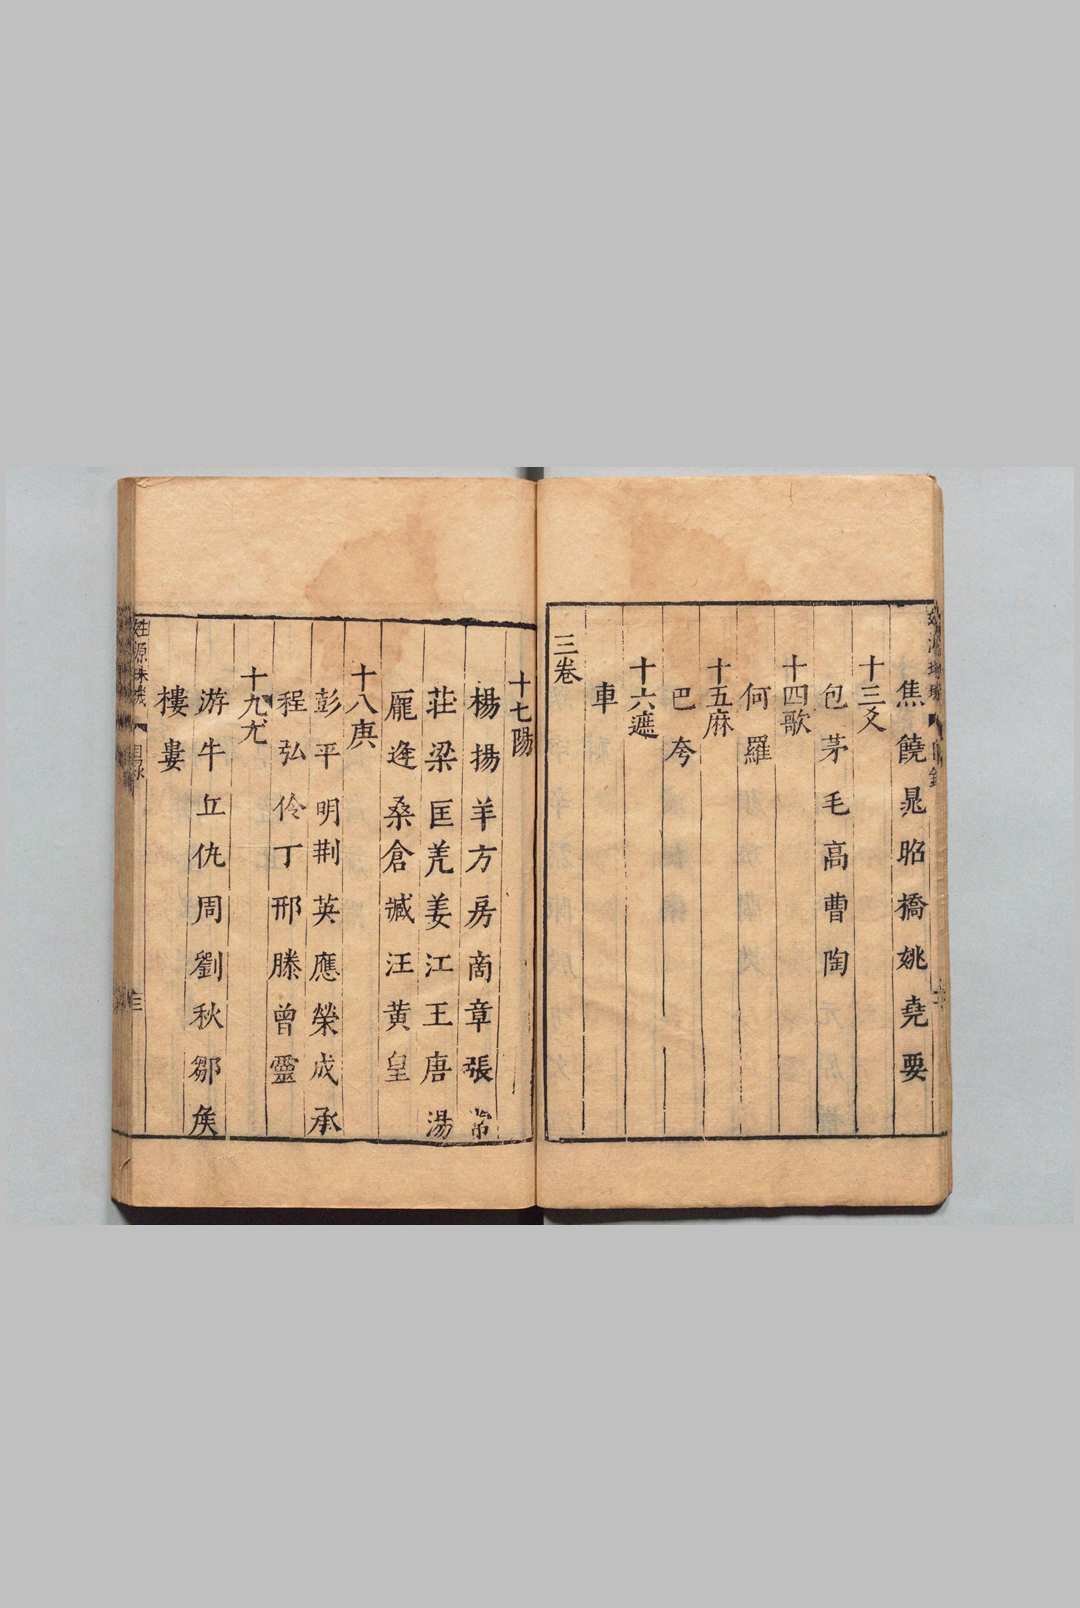 焦饒晁昭橋姚堯要
十三爻
包茅毛高曹陶
十四歌
何羅
十五麻
巴夸
十六遮
車
三卷
十七陽
楊揚羊方房商章張常
莊梁匡羌姜江王唐湯
龐逄桑倉臧汪黃皇
十八庚
彭平明荆英應榮成承
程弘伶丁邢滕曾靈
十九尤
游牛丘仇周劉秋鄒矦
樓婁
姓源珠璣
目錄
三